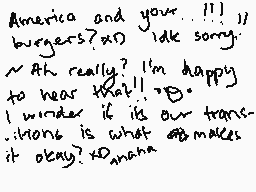 America and your ..!!! !!
burgers? xD Idk sorry.
~ Ah really? I'm happy
to hear that!! ·O·
I wonder if its our trans-
itions is what makes
it okay? xD haha